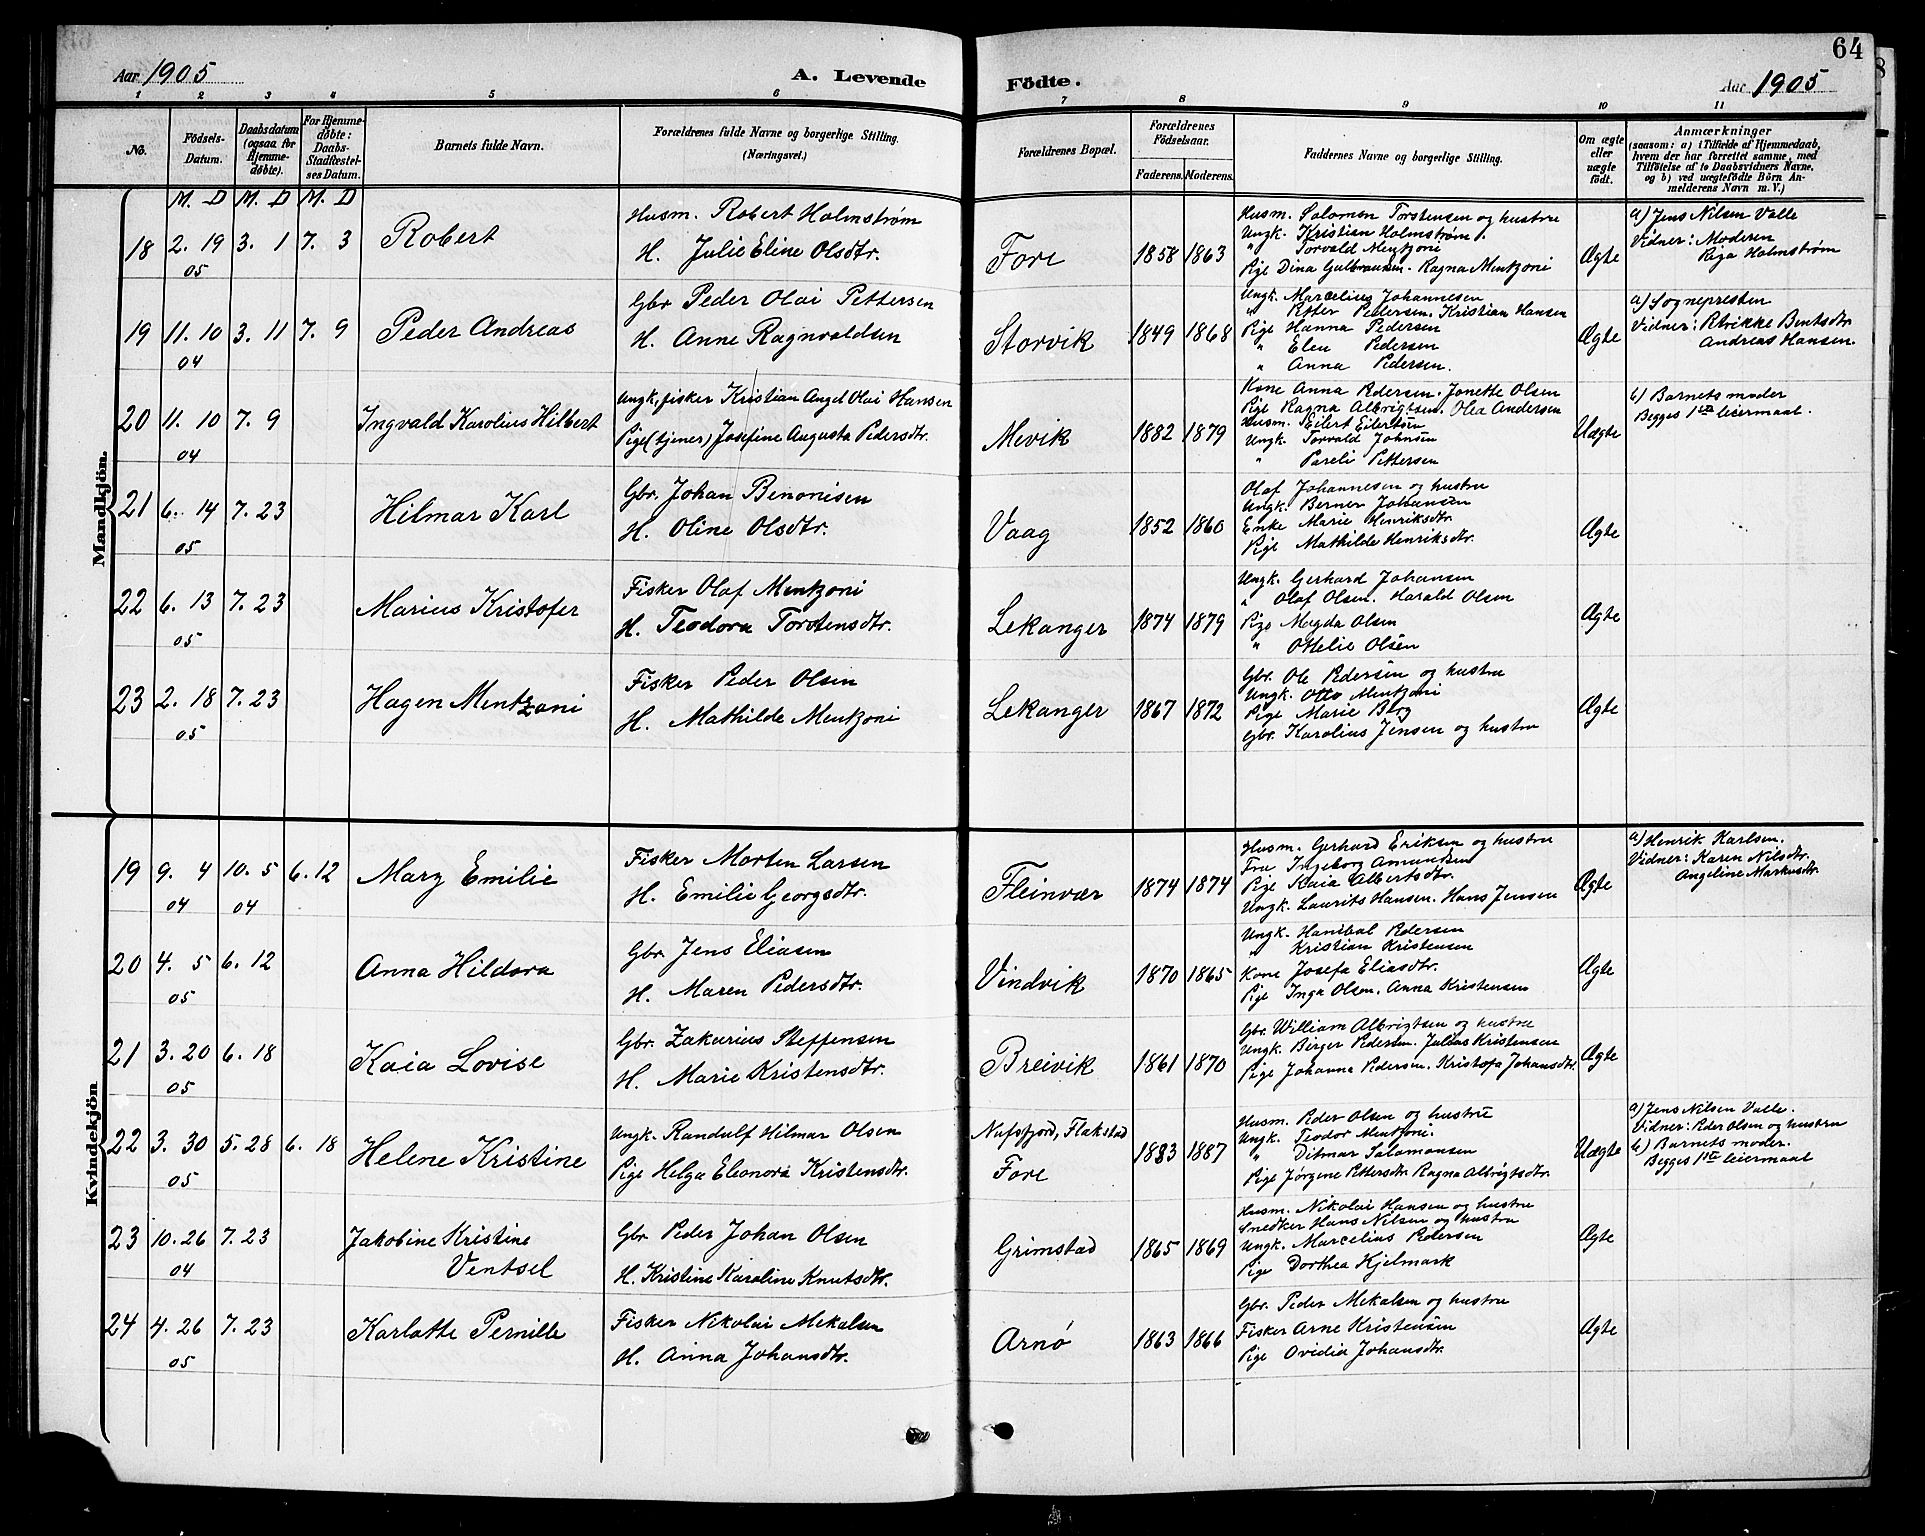 64
Aar 1905 A. Levende Födte. Aar 1905
1 2 3 4 5 6 7 8 9 10 11
No. Födsels-Datum. Daabsdatum (ogsaa for Hjemmedöbte). For Hjemmedöbte: Daabs-Stadfestelses Datum. Barnets fulde Navn. Forældrenes fulde Navne og borgerlige Stilling. (Næringsvei.) Forældrenes Bopæl. Forældrenes Födselsaar. Faderens. Moderens. Faddernes Navne og borgerlige Stilling. Om ægte eller uægte födt. Anmærkninger (saasom: a) i Tilfælde af Hjemmedaab, hvem der har forrettet samme, med Tilföielse af to Daabsvidners Navne, og b) ved uægtefödte Börn Anmelderens Navn m. V.)
M. D M. D M. D
Mandkjön.
18 2. 19 05 3. 1 7. 3 Robert
Husm. Robert Holmstrøm
H. Julie Eline Olsdtr.
Fore 1858 1863
Husm. Salomon Torstensen og hustru
Ungk. Kristian Holmstrøm.
" Torvald Mentzoni
Pige Dina Gulbransen. Ragna Mentzoni
Ægte
a) Jens Nilsen Valle
Vidner: Moderen
Pige Holmstrøm
19 11. 10 04 3. 11 7. 9 Peder Andreas
Gbr Peder Olai Pettersen
H. Anne Ragnvaldsen
Storvik 1849 1868
Ungk. Marcelius Johannesen
" Petter Pettersen. Kristian Hansen
Pige Hanna Pedersen
" Elen Pedersen
" Anna Pedersen.
Ægte
a) Sognepresten
Vidner: Rikke Bentsdtr.
Andreas Hansen.
20 11. 10 04 7. 9 Ingvald Karolius Hilbert
Ungk, fisker Kristian Angel Olai Hansen
Pige (tjener) Josefine Augusta Pedersdtr.
Mevik 1882 1879
Kone Anna Pedersen. Jonette Olsen
Pige Ragna Albrigtsen. Olea Andersen
Husm. Eilert Eilertsen
Ungk. Torvald Johnsen
" Pareli Pettersen
Uægte
b) Barnets moder
Begges 1ste leiermaal.
21 6. 14 05 7. 23 Hilmar Karl
Gbr. Johan Benonisen
H. Oline Olsdtr.
Vaag 1852 1860
Olaf Johannesen og hustru
Ungk. Berner Johansen
Enke Marie Henriksdtr.
Pige Mathilde Henriksdtr.
Ægte
22 6. 13 05 7. 23 Marius Kristofer
Fisker Olaf Mentzoni
H. Teodora Torstensdtr.
Lekanger 1874 1879
Ungk. Gerhard Johansen
" Olaf Olsen. Harald Olsen
Pige Magda Olsen
" Ottelie Olsen
Ægte
23 2. 18 05 7. 23 Hagen Mentzoni
Fisker Peder Olsen
H. Mathilde Mentzoni
Lekanger 1867 1872
Gbr. Ole Pedersen og hustru
Ungk. Otto Mentzoni
Pige Marie Berg
Gbr. Karolius Jensen og hustru
Ægte
Kvindekjön
19 9. 4 04 10. 5 04 6. 12 Mary Emilie
Fisker Morten Larsen
H. Emilie Georgsdtr.
Fleinvær 1874 1874
Husm. Gerhard Eriksen og hustru
Fru Ingeborg Amundsen
Pige Kaia Albertsdtr.
Ungk. Laurits Hansen. Hans Jensen
Ægte
a) Henrik Karlsen.
Vidner: Karen Nilsdtr.
Angeline Markusdtr.
20 4. 5 05 6. 12 Anna Hildora
Gbr. Jens Eliasen
H. Maren Pedersdtr.
Vindvik 1870 1865
Ungk. Hanibal Pedersen
" Kristian Kristensen
Kone Josefa Eliasdtr.
Pige Inga Olsen. Anna Kristensen
Ægte
21 3. 20 05 6. 18 Kaia Lovise
Gbr. Zakarius Steffensen
H. Marie Kristensdtr.
Breivik 1861 1870
Gbr. William Albrigtsen og hustru
Ungk. Birger Pedersen. Julius Kristensen
Pige Johanna Pedersen. Kristofa Johansdtr.
Ægte
22 3. 30 05 5. 28 6. 18 Helene Kristine
Ungk. Randulf Hilmar Olsen
Pige Helga Eleonora Kristensdtr.
Nufsfjord, Flakstad
Fore 1883 1887
Husm. Peder Olsen og hustru
Ungk. Teodor Mentzoni.
" Ditmar Salamonsen
Pige Jørgene Pettersdtr. Ragna Albrigtsdtr.
Uægte
a) Jens Nilsen Valle.
Vidner: Peder Olsen og hustru
b) Barnets moder.
Begges 1ste leiermaal
23 10. 26 04 7. 23 Jakobine Kristine
Ventsel
Gbr Peder Johan Olsen
H. Kristine Karoline Knutsdtr.
Grimstad 1865 1869
Husm. Nikolai Hansen og hustru
Snedker Hans Nilsen og hustru
Ungk. Marcelius Pedersen
Pige Dorthea Hjelmark
Ægte
24 4. 26 05 7. 23 Karlotte Pernille
Fisker Nikolai Mekalsen
H. Anna Johansdtr.
Arnø 1863 1866
Gbr. Peder Mekalsen og hustru
Fisker Arne Kristensen
Pige Ovidia Johansdtr.
Ægte